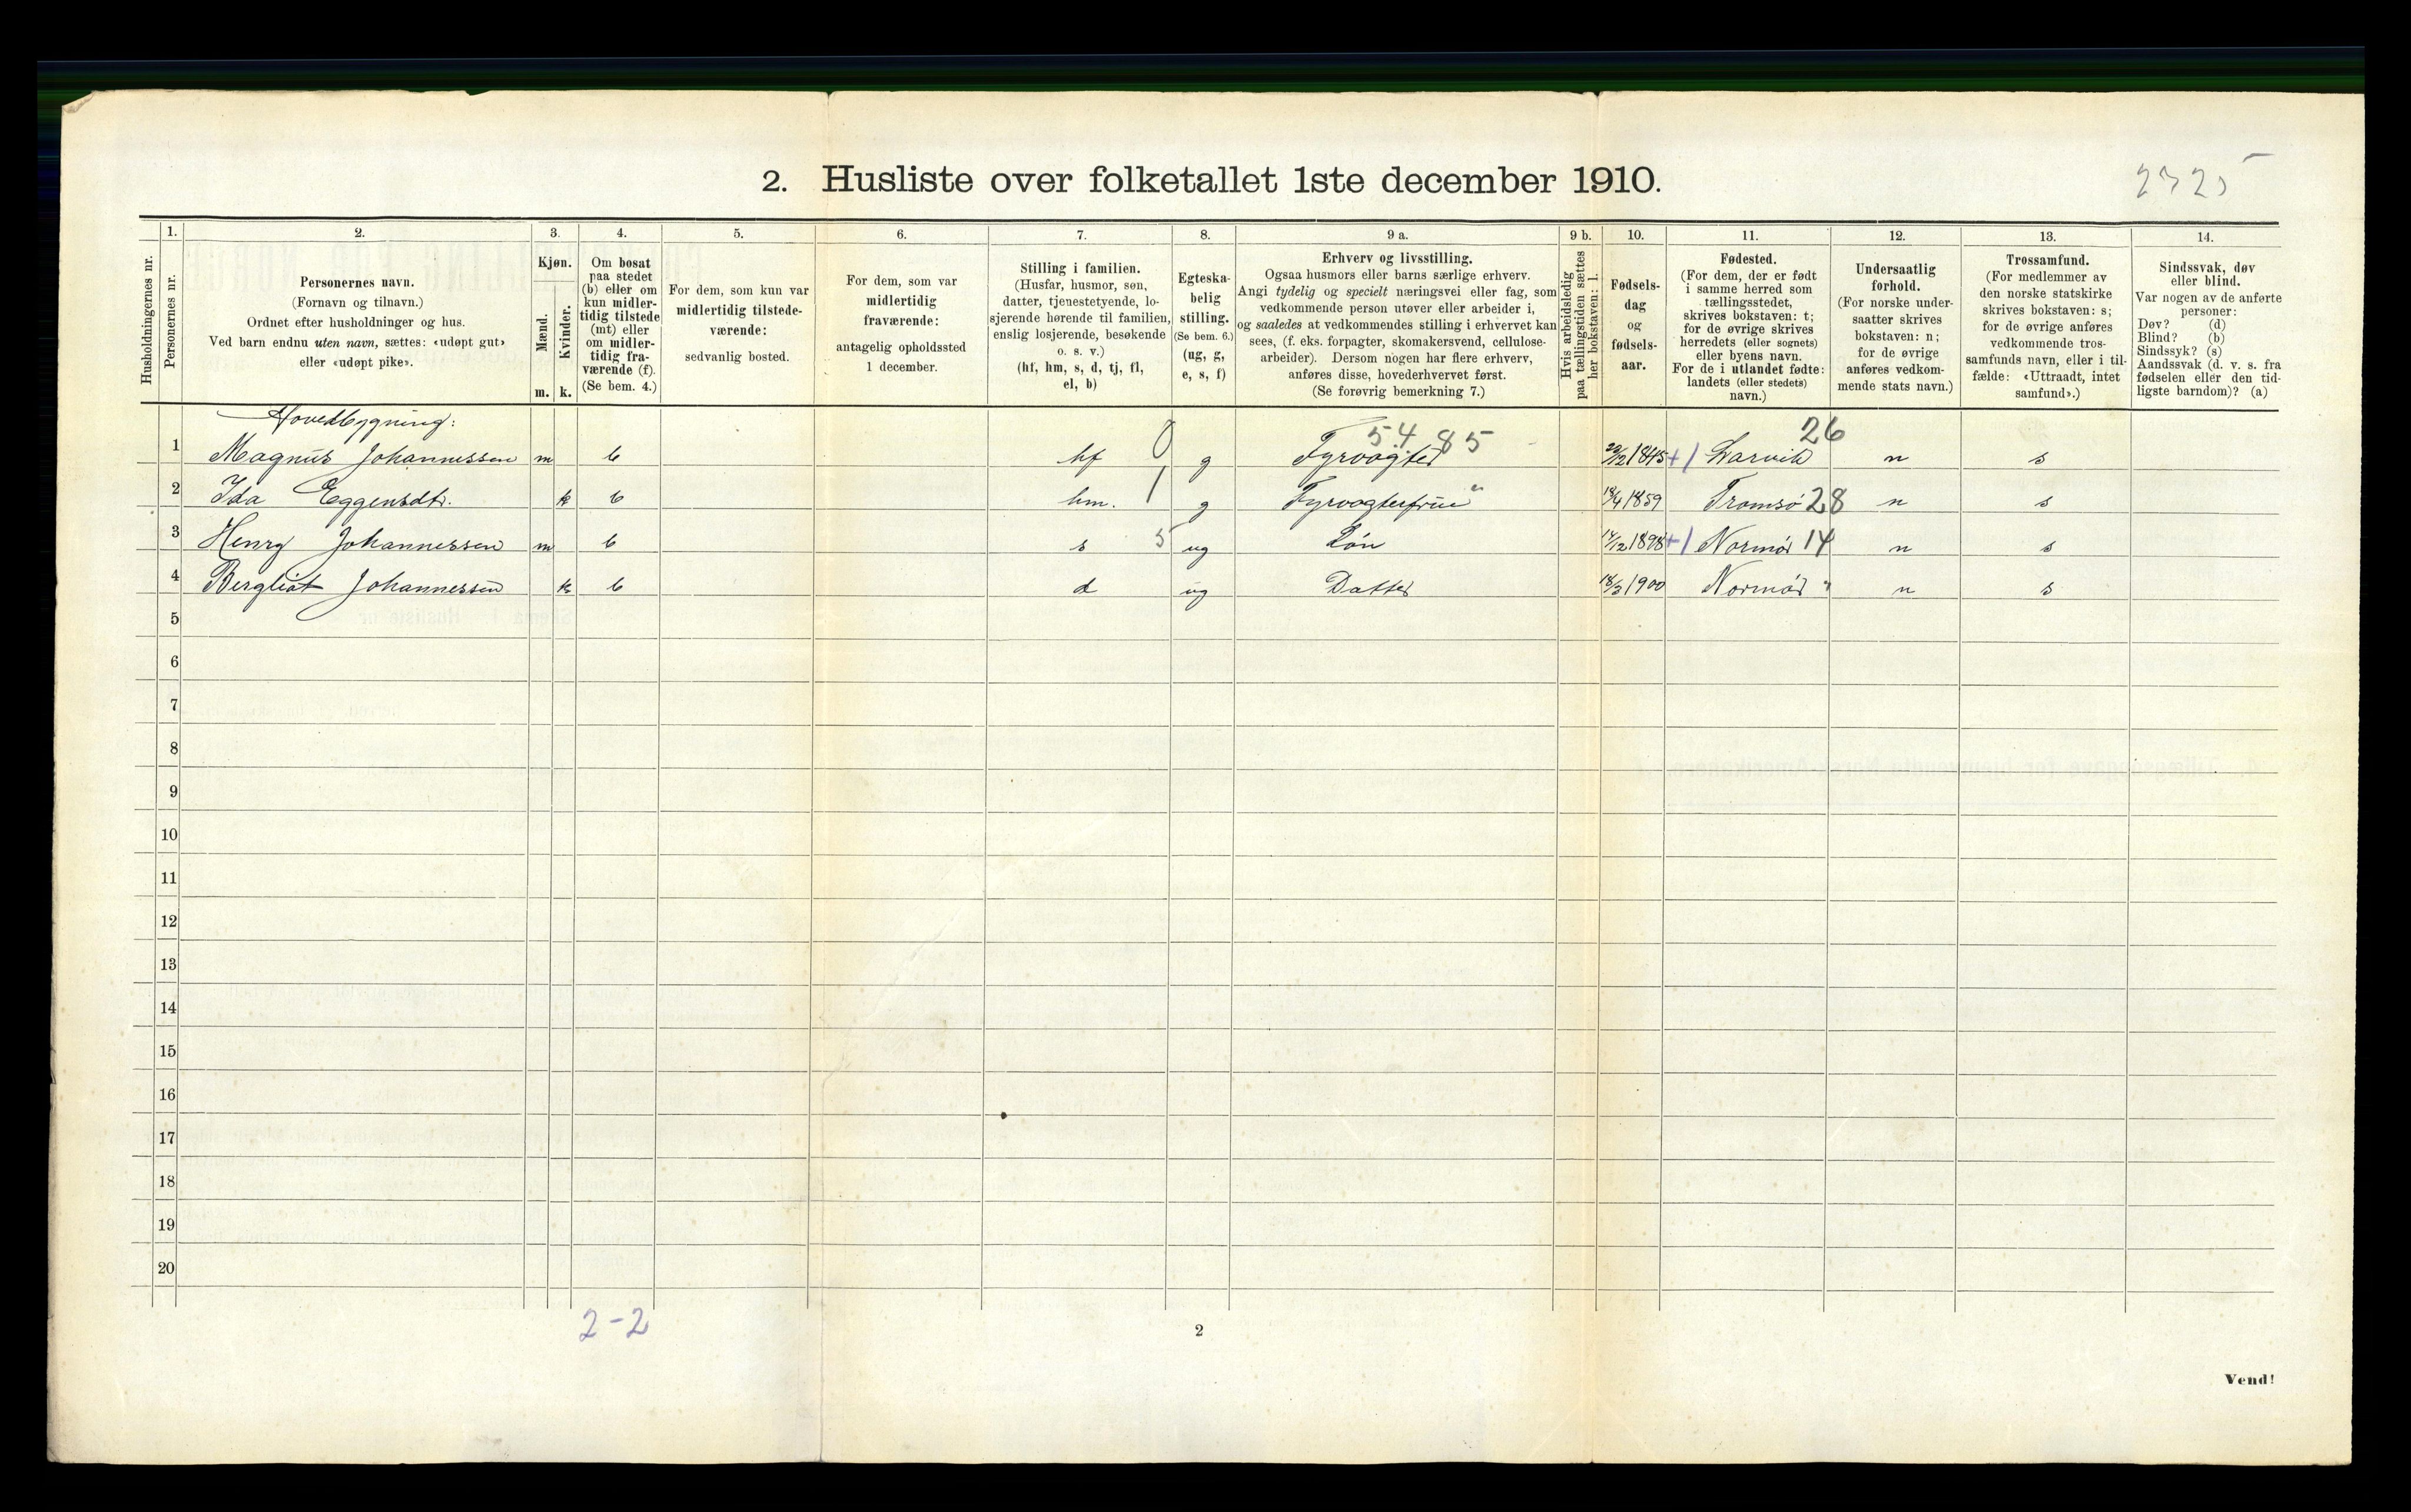 2. Husliste over folketallet 1ste december 1910.
2325
1. 2. 3. 4. 5. 6. 7. 8. 9 a. 9 b. 10. 11. 12. 13. 14.
Husholdningernes nr.
Personernes nr.
Personernes navn.
(Fornavn og tilnavn.)
Ordnet efter husholdninger og hus.
Ved barn endnu uten navn, sættes: «udøpt gut»
eller «udøpt pike».
Kjøn.
Mænd.
Kvinder.
m. k.
Om bosat
paa stedet
(b) eller om
kun midler-
tidig tilstede
(mt) eller
om midler-
tidig fra-
værende (f).
(Se bem. 4.)
For dem, som kun var
midlertidig tilstede-
værende:
sedvanlig bosted.
For dem, som var
midlertidig
fraværende:
antagelig opholdssted
1 december.
Stilling i familien.
(Husfar, husmor, søn,
datter, tjenestetyende, lo-
sjerende hørende til familien,
enslig losjerende, besøkende
o. s. v.)
(hf, hm, s, d, tj, fl,
el, b)
Egteska-
belig
stilling.
(Se bem. 6.)
(ug, g,
e, s, f)
Erhverv og livsstilling.
Ogsaa husmors eller barns særlige erhverv.
Angi tydelig og specielt næringsvei eller fag, som
vedkommende person utøver eller arbeider i,
og saaledes at vedkommendes stilling i erhvervet kan
sees, (f. eks. forpagter, skomakersvend, cellulose-
arbeider). Dersom nogen har flere erhverv,
anføres disse, hovederhvervet først.
(Se forøvrig bemerkning 7.)
Hvis arbeidsledig
paa tællingstiden sættes
her bokstaven: l.
Fødsels-
dag
og
fødsels-
aar.
Fødested.
(For dem, der er født
i samme herred som
tællingsstedet,
skrives bokstaven: t;
for de øvrige skrives
herredets (eller sognets)
eller byens navn.
For de i utlandet fødte:
landets (eller stedets)
navn.)
Undersaatlig
forhold.
(For norske under-
saatter skrives
bokstaven: n;
for de øvrige
anføres vedkom-
mende stats navn.)
Trossamfund.
(For medlemmer av
den norske statskirke
skrives bokstaven: s;
for de øvrige anføres
vedkommende tros-
samfunds navn, eller i til-
fælde: «Uttraadt, intet
samfund».)
Sindssvak, døv
eller blind.
Var nogen av de anførte
personer:
Døv? (d)
Blind? (b)
Sindssyk? (s)
Aandssvak (d. v. s. fra
fødselen eller den tid-
ligste barndom)? (a)
Hovedbygning:
0 54 85 26
1 Magnus Johannessen m b hf g Fyrvogter 1845 +1 Larvik n s
2 Ida Eggensdtr. k b hm. 1 g Fyrvogterfrue " 18/4 1859 Tromsø 28 n s
3 Henry Johannessen m b s 5 ug Søn 1898 +1 Normør 14 n s
4 Bergliot Johannessen k b d ug Datter 18/3 1900 Normør " n s
5
6
7
8
9
10
11
12
13
14
15
16
17
18
19
20
2-2
2
Vend!